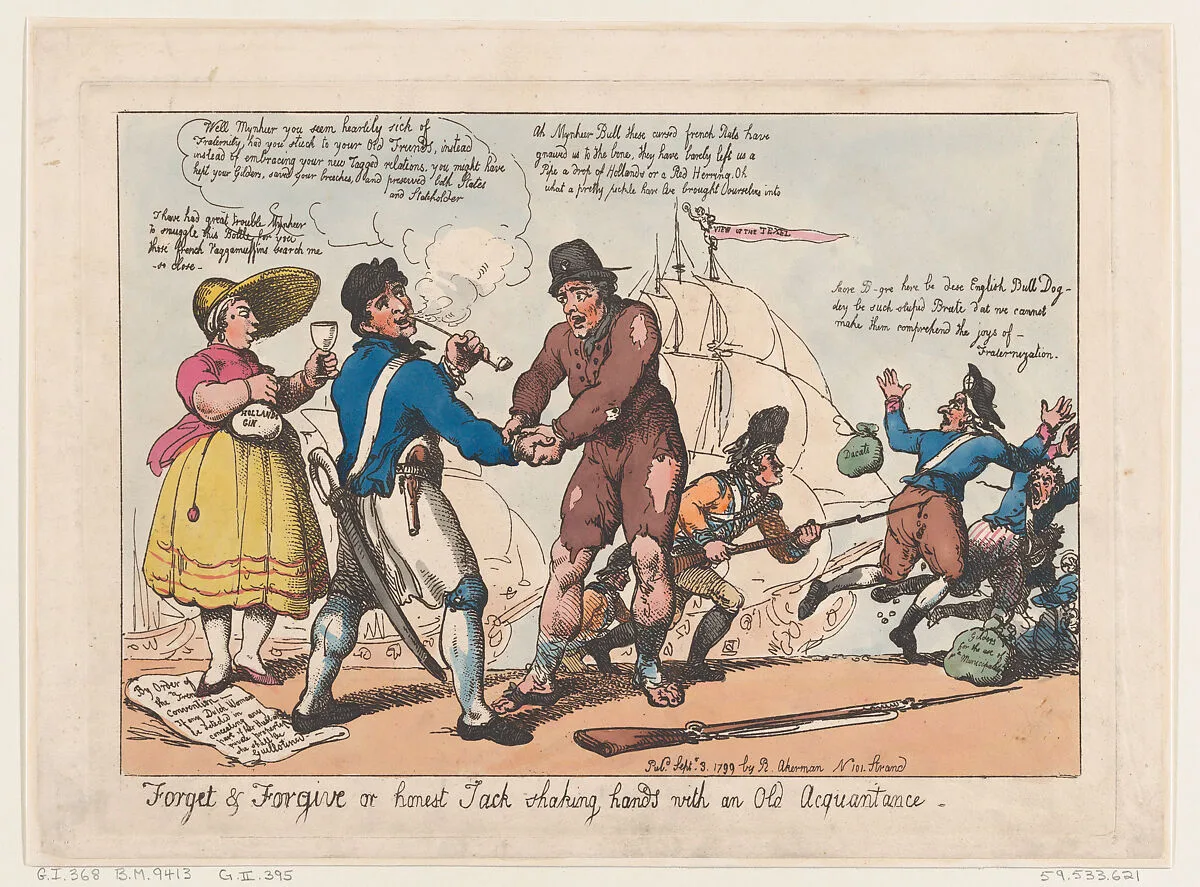 Well Mynheer you seem heartily sick of
Fraternity, had you stuck to your Old Friends, instead
instead of embracing your new ragged relations, you might have
kept your Gilders, saved your breeches, and preserved both States
and Stateholder
Ah Mynheer Bull these cursed french Rats have
gnawed us to the bone, they have barely left us a
Pipe a drop of Hollands or a Red Herring. Oh
what a pretty pickle have We brought Ourselves into
I have had great trouble Mynheer
to smuggle this Bottle for you
those French Raggamuffins search me
so close -
VIEW of the TEXEL
Sacre D-gre here be dese English Bull Dog-
dey be such stupid Brute dat we cannot
make them comprehend the joys of -
Fraternization.
HOLLANDS
GIN.
Ducats
Gilders
for the use of
Municipality
By Order of
the French
Convention
If any Dutch Woman
be detected in
concealing any
part of her Husbands
private property
she shall be
Guillotined
Pubd. Septr. 3. 1799 by R. Akerman No 101. Strand
Forget & Forgive or honest Jack shaking hands with an Old Acquantance -
G.I.368 B.M.9413 G.II.395
59.533.621